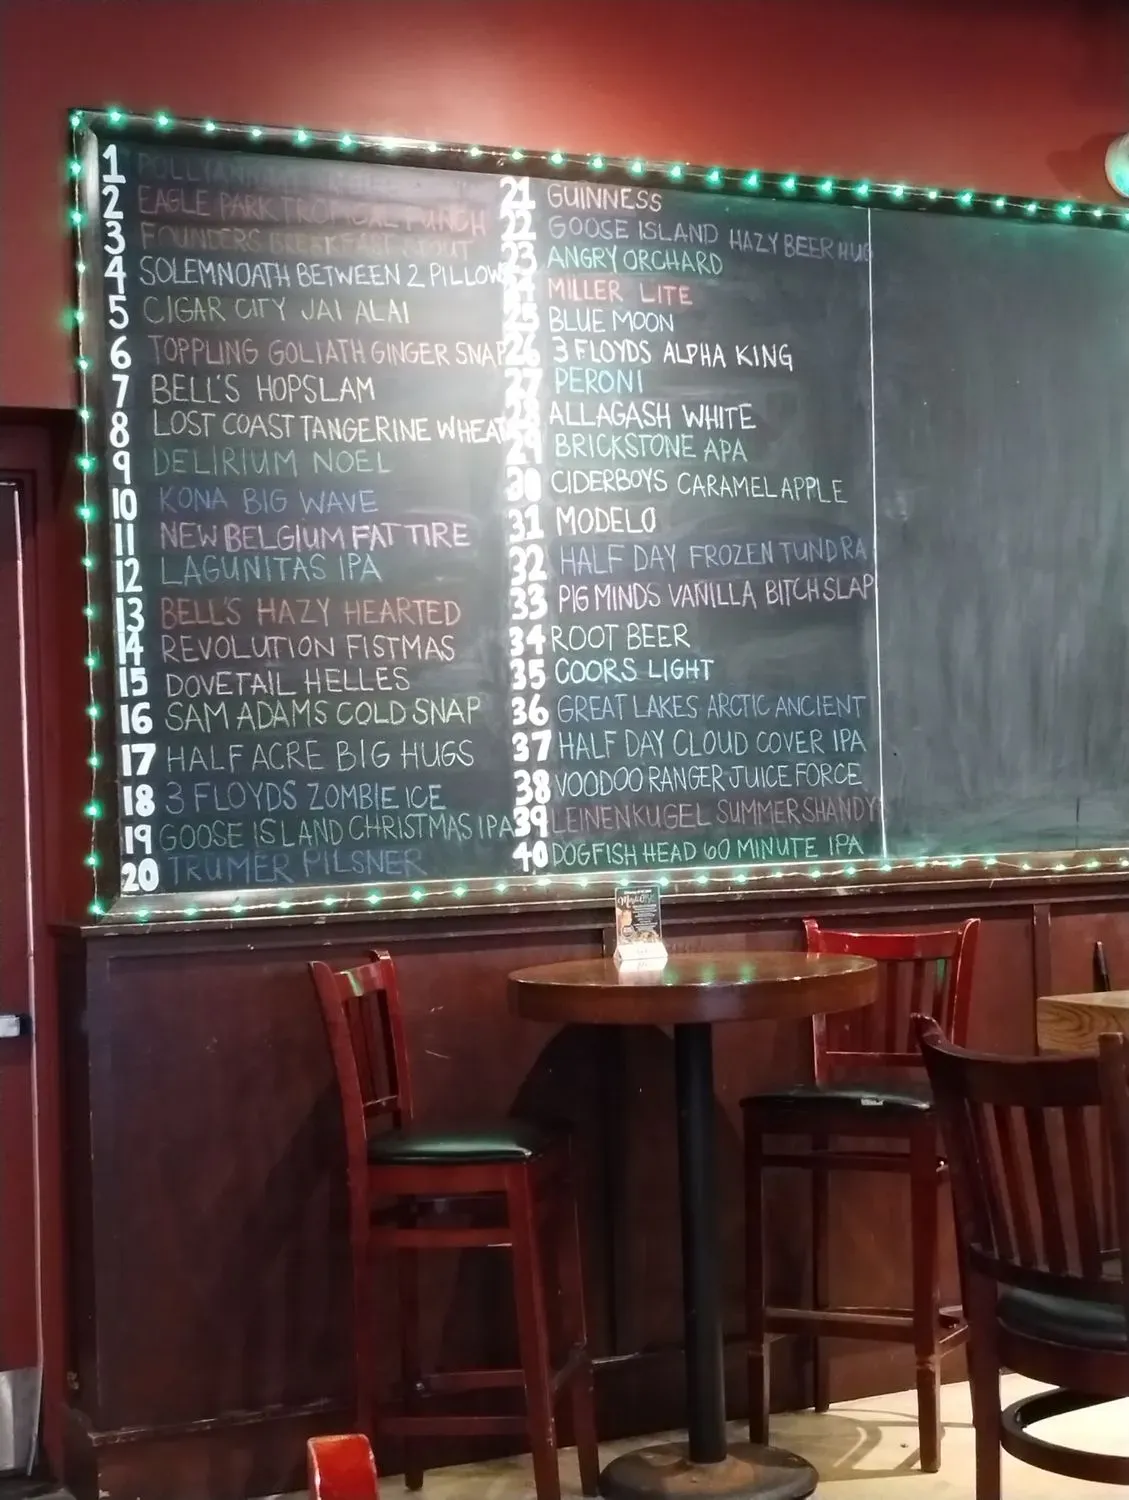 1 POLLYANNA
2 EAGLE PARK TROPICAL PUNCH
3 FOUNDERS BREAKFAST STOUT
4 SOLEMNOATH BETWEEN 2 PILLOWS
5 CIGAR CITY JAI ALAI
6 TOPPLING GOLIATH GINGER SNAP
7 BELL'S HOPSLAM
8 LOST COAST TANGERINE WHEAT
9 DELIRIUM NOEL
10 KONA BIG WAVE
11 NEW BELGIUM FAT TIRE
12 LAGUNITAS IPA
13 BELL'S HAZY HEARTED
14 REVOLUTION FISTMAS
15 DOVETAIL HELLES
16 SAM ADAMS COLD SNAP
17 HALF ACRE BIG HUGS
18 3 FLOYDS ZOMBIE ICE
19 GOOSE ISLAND CHRISTMAS IPA
20 TRUMER PILSNER
21 GUINNESS
22 GOOSE ISLAND HAZY BEER HUG
23 ANGRY ORCHARD
24 MILLER LITE
25 BLUE MOON
26 3 FLOYDS ALPHA KING
27 PERONI
28 ALLAGASH WHITE
29 BRICKSTONE APA
30 CIDERBOYS CARAMEL APPLE
31 MODELO
32 HALF DAY FROZEN TUNDRA
33 PIG MINDS VANILLA BITCH SLAP
34 ROOT BEER
35 COORS LIGHT
36 GREAT LAKES ARCTIC ANCIENT
37 HALF DAY CLOUD COVER IPA
38 VOODOO RANGER JUICE FORCE
39 LEINENKUGEL SUMMER SHANDY
40 DOGFISH HEAD 60 MINUTE IPA